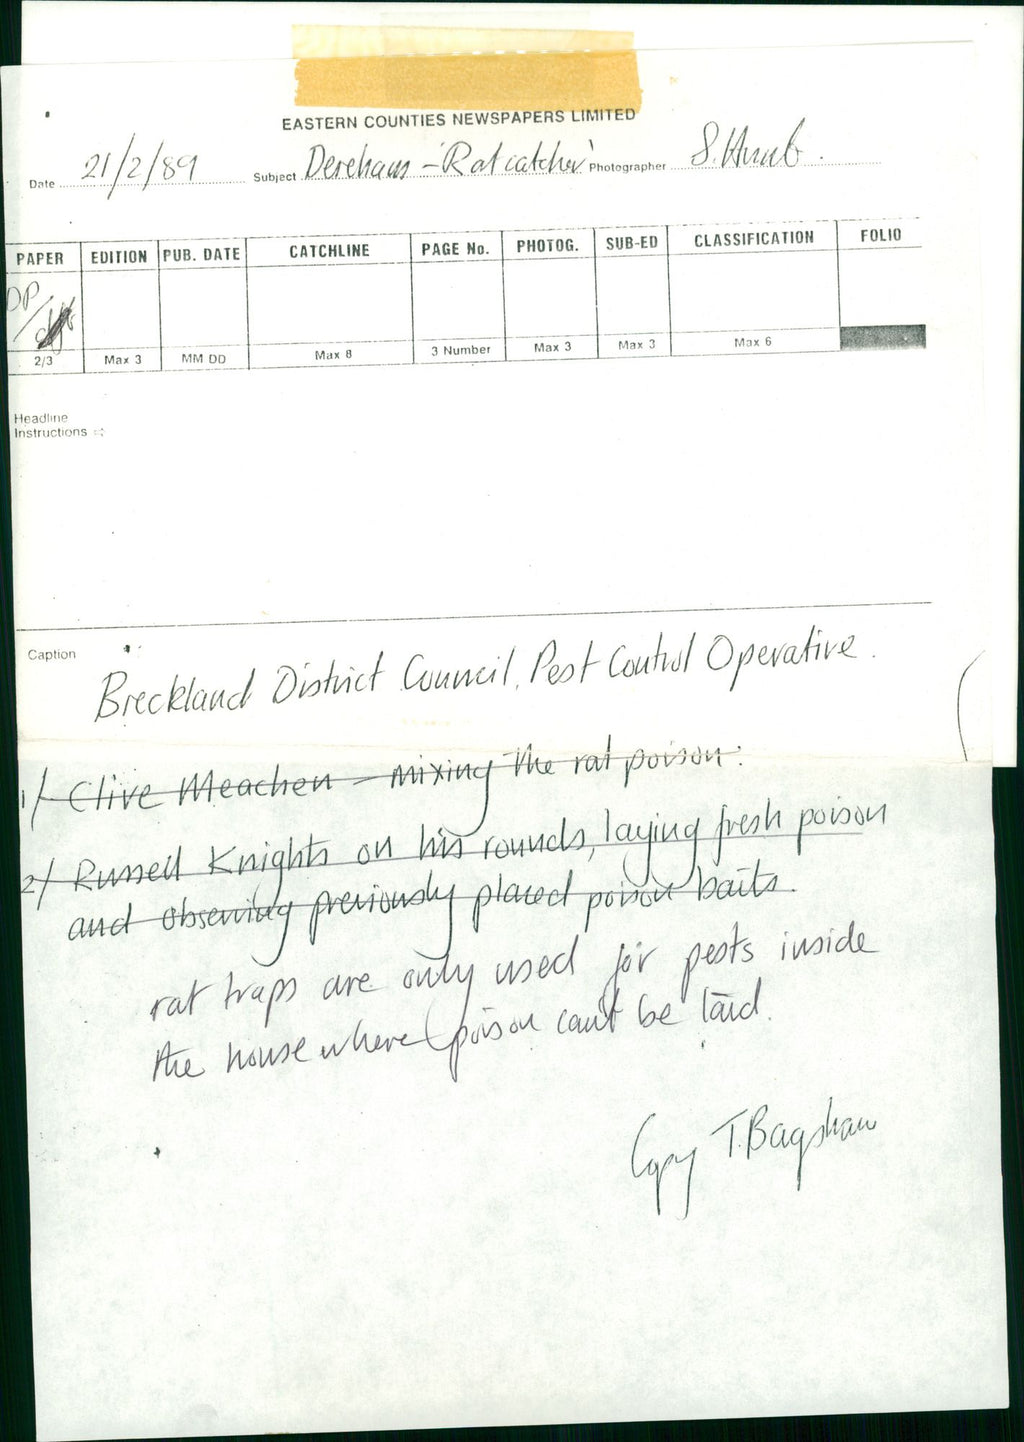 EASTERN COUNTIES NEWSPAPERS LIMITED
Date 21/2/89 Subject Dereham - 'Ratcatcher' Photographer S.
PAPER EDITION PUB. DATE CATCHLINE PAGE No. PHOTOG. SUB-ED CLASSIFICATION FOLIO
DP/
2/3 Max 3 MM DD Max 8 3 Number Max 3 Max 3 Max 6
Headline
Instructions
Caption
Breckland District Council. Pest Control Operative.
1/ Clive Meachen - mixing the rat poison.
2/ Russell Knights on his rounds, laying fresh poison
and observing previously placed poison baits.
rat traps are only used for pests inside
the house where poison can't be laid.
Copy T. Bagshaw